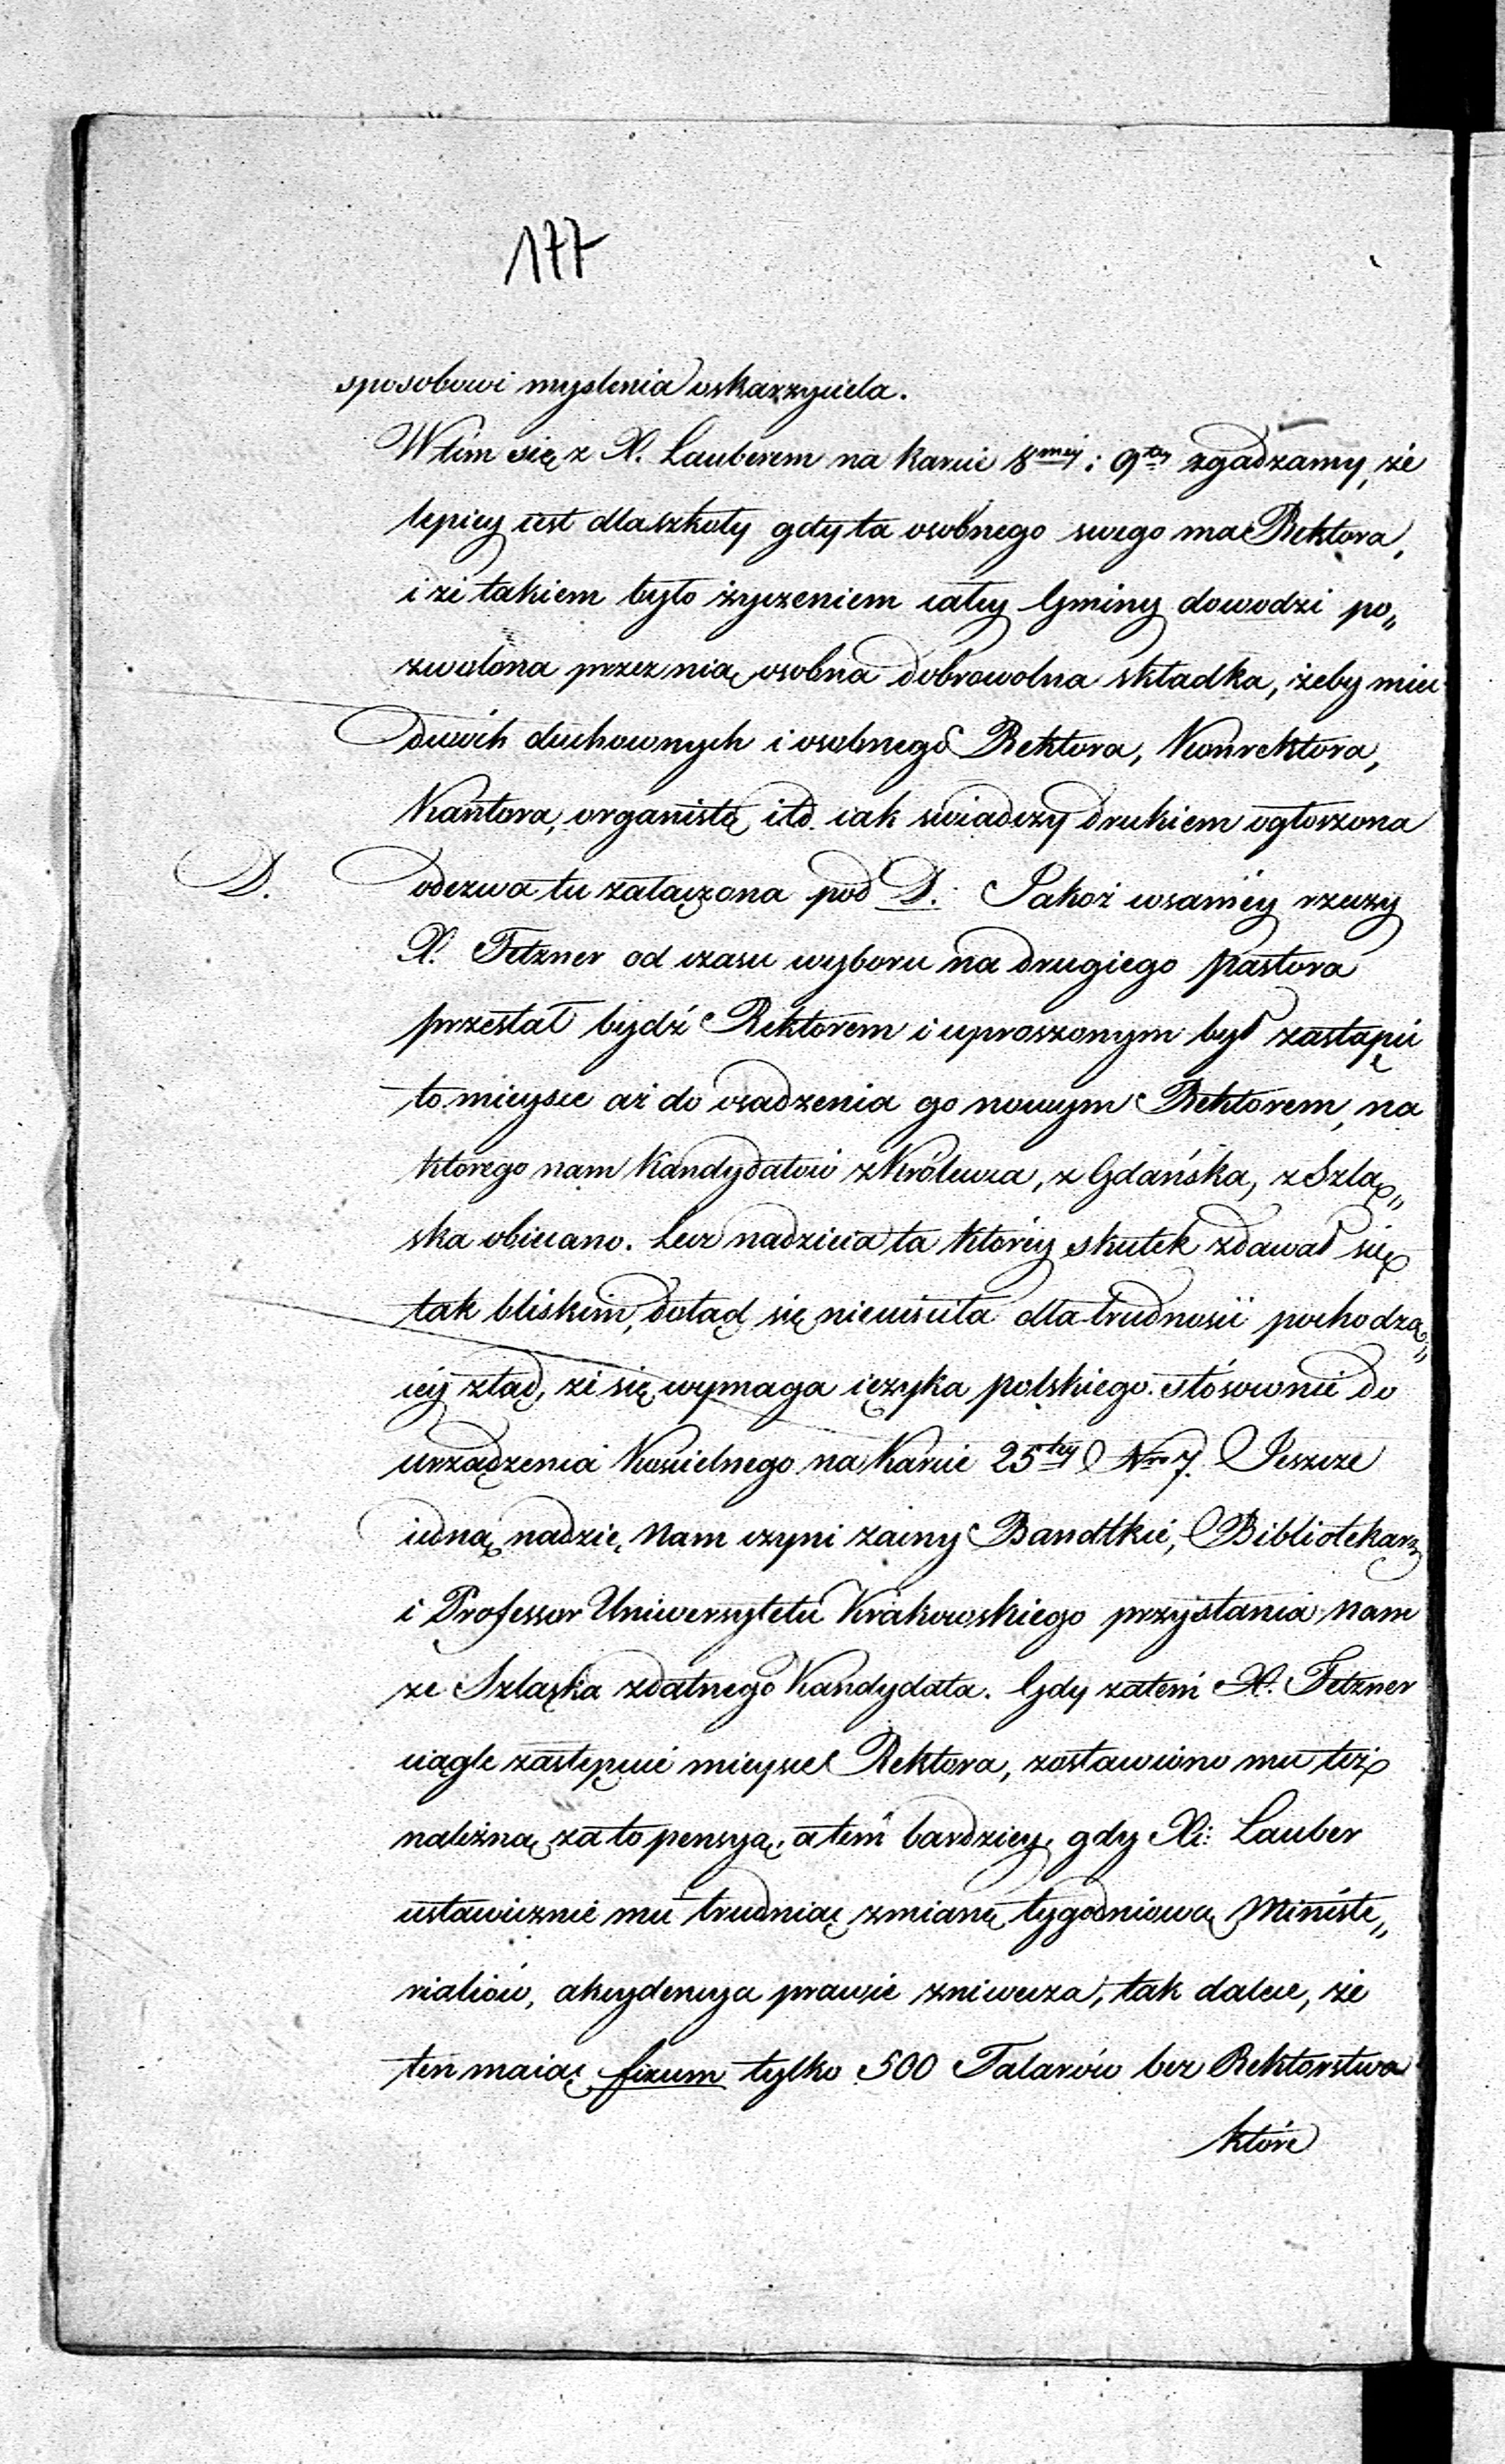 177
sposobowi myslenia oskarzyciela.
W tém się z X. Lauberem na karcie 8méj i 9téj zgadzamy, że
lepiey iest dla szkoły gdy ta osobnego swego ma Rektora,
i że takiem było życzeniem całey Gminy dowodzi po„
zwolona przez nią osobna dobrowolna składka, żeby mieć
dwóch duchownych i osobnego Rektora, Konrektora,
Kantora, organistę itd. iak swiadczy drukiem ogłoszona
D. odezwa tu załączona pod D. Jakoż w saméy rzeczy
X. Tetzner od czasu wyboru na drugiego pastora
przestał bydź Rektorem i uproszonym był zastąpić
to mieysce aż do osadzenia go nowym Rektorem, na
ktorego nam Kandydatów z Królewca, z Gdańska, z Szlą„
ska obiecano. Lecz nadzieia ta któréy skutek zdawał się
tak bliskim, dotąd się nieuiściła dla trudności pochodzą„
céy ztąd, że się wymaga ięzyka polskiego stósownie do
urządzenia Kościelnego na Karcie 25téy Nro 7. Jeszcze
iedną nadzieię nam czyni zacny Bandtkie, Bibliotekarz
i Professor Uniwersytetu Krakowskiego przysłania nam
ze Szląska zdatnego Kandydata. Gdy zatém X. Tetzner
ciągle zastępuie mieysce Rektora, zostawiono mu też
należną za to pensyą, a tem bardziey, gdy X. Lauber
ustawicznie mu trudniąc zmianę tygodniową Ministe„
rialiów, akcydencya prawie zniwecza, tak dalece, że
ten maiąc fixum tylko 500 Talarów bez Rektorstwa
które